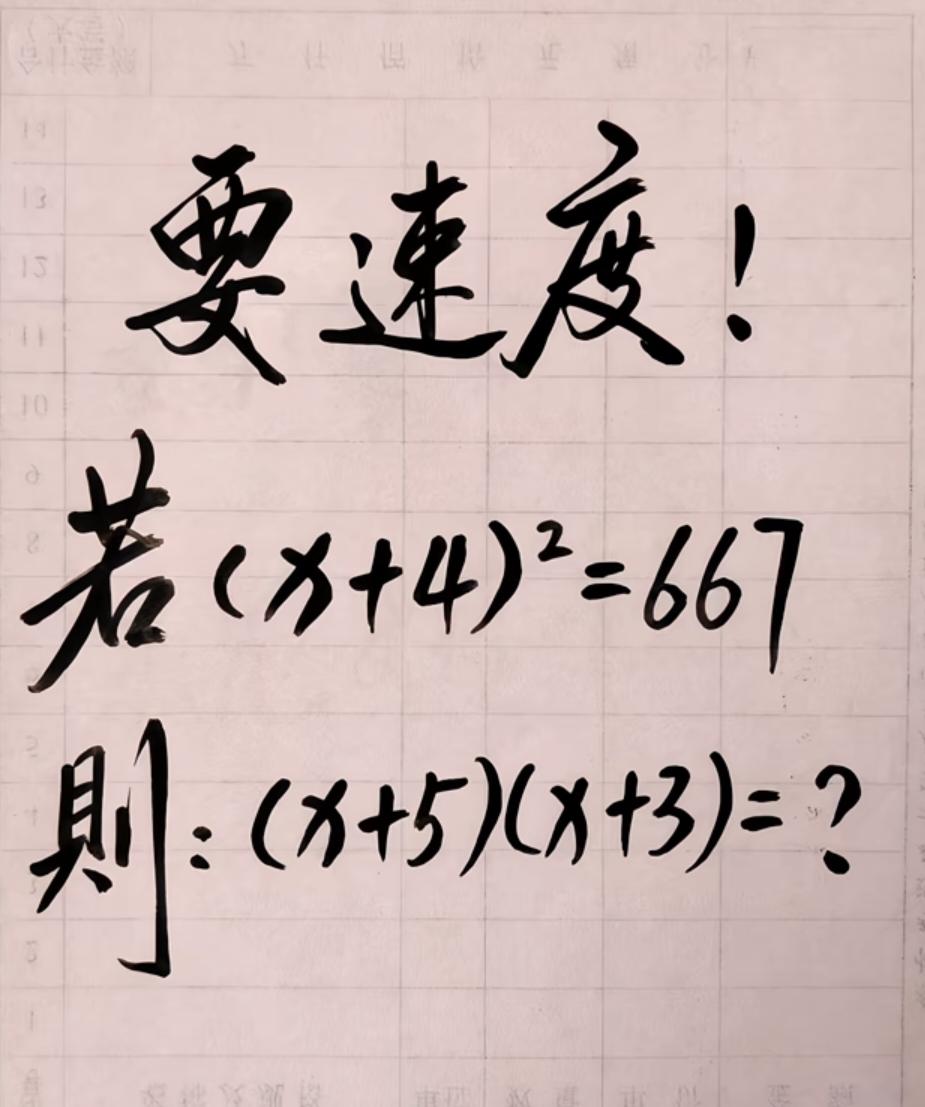 要速度!
若(x+4)²=667
則:(x+5)(x+3)=?